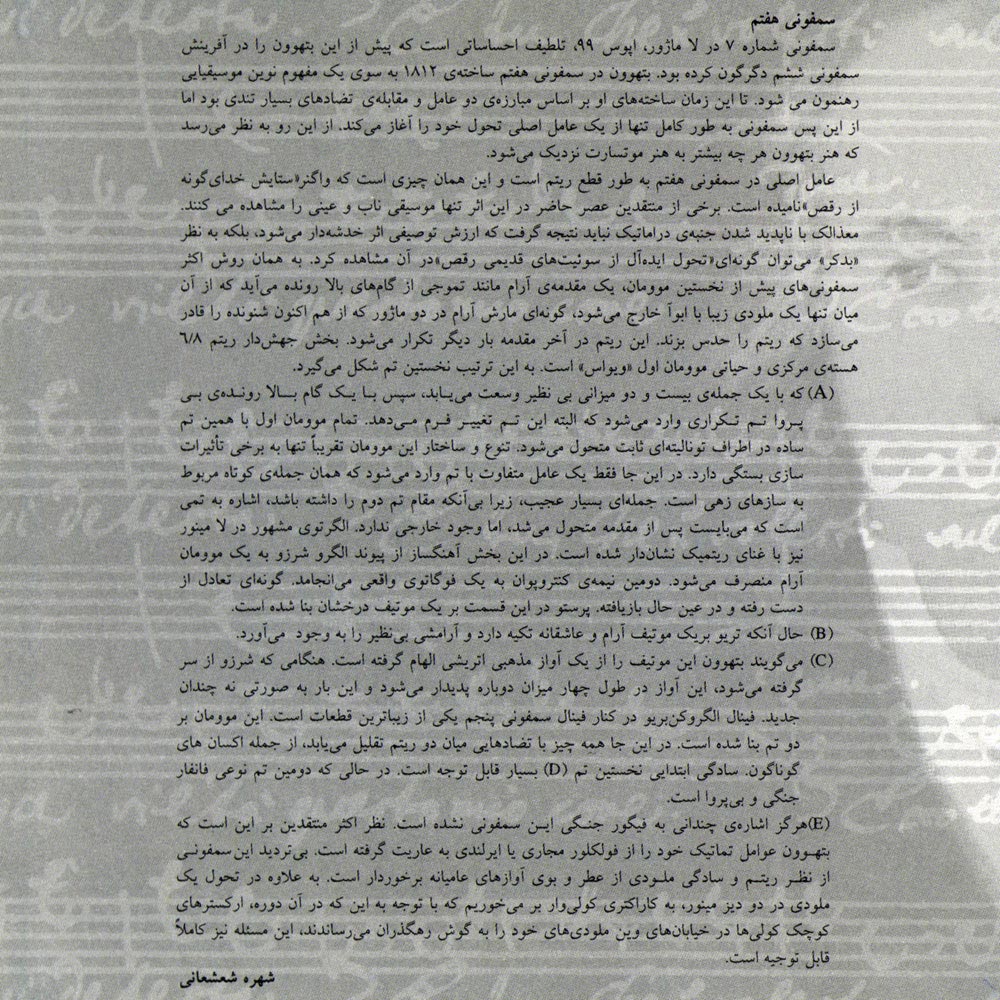 سمفونی هفتم
سمفونی شماره ۷ در لا ماژور، اپوس ۹۹، تلطیف احساساتی است که پیش از این بتهوون را در آفرینش
سمفونی ششم دگرگون کرده بود. بتهوون در سمفونی هفتم ساخته‌ی ۱۸۱۲ به سوی یک مفهوم نوین موسیقیایی
رهنمون می شود. تا این زمان ساخته‌های او بر اساس مبارزه‌ی دو عامل و مقابله‌ی تضادهای بسیار تندی بود اما
از این پس سمفونی به طور کامل تنها از یک عامل اصلی تحول خود را آغاز می‌کند. از این رو به نظر می‌رسد
که هنر بتهوون هر چه بیشتر به هنر موتسارت نزدیک می‌شود.
عامل اصلی در سمفونی هفتم به طور قطع ریتم است و این همان چیزی است که واگنر«ستایش خدای‌گونه
از رقص»نامیده است. برخی از منتقدین عصر حاضر در این اثر تنها موسیقی ناب و عینی را مشاهده می کنند.
معذالک با ناپدید شدن جنبه‌ی دراماتیک نباید نتیجه گرفت که ارزش توصیفی اثر خدشه‌دار می‌شود، بلکه به نظر
«بدکر» می‌توان گونه‌ای«تحول ایده‌آل از سوئیت‌های قدیمی رقص»در آن مشاهده کرد. به همان روش اکثر
سمفونی‌های پیش از نخستین موومان، یک مقدمه‌ی آرام مانند تموجی از گام‌های بالا رونده می‌آید که از آن
میان تنها یک ملودی زیبا با ابوآ خارج می‌شود، گونه‌ای مارش آرام در دو ماژور که از هم اکنون شنونده را قادر
می‌سازد که ریتم را حدس بزند. این ریتم در آخر مقدمه بار دیگر تکرار می‌شود. بخش جهش‌دار ریتم ۶/۸
هسته‌ی مرکزی و حیاتی موومان اول «ویواس» است. به این ترتیب نخستین تم شکل می‌گیرد.
(A) که با یک جمله‌ی بیست و دو میزانی بی نظیر وسعت می‌یابد، سپس با یک گام بالا رونده‌ی بی
پروا تم تکراری وارد می‌شود که البته این تم تغییر فرم می‌دهد. تمام موومان اول با همین تم
ساده در اطراف تونالیته‌ای ثابت متحول می‌شود. تنوع و ساختار این موومان تقریباً تنها به برخی تأثیرات
سازی بستگی دارد. در این جا فقط یک عامل متفاوت با تم وارد می‌شود که همان جمله‌ی کوتاه مربوط
به سازهای زهی است. جمله‌ای بسیار عجیب، زیرا بی‌آنکه مقام تم دوم را داشته باشد، اشاره به تمی
است که می‌بایست پس از مقدمه متحول می‌شد، اما وجود خارجی ندارد. الگرتوی مشهور در لا مینور
نیز با غنای ریتمیک نشان‌دار شده است. در این بخش آهنگساز از پیوند الگرو شرزو به یک موومان
آرام منصرف می‌شود. دومین نیمه‌ی کنتروپوان به یک فوگاتوی واقعی می‌انجامد. گونه‌ای تعادل از
دست رفته و در عین حال بازیافته. پرستو در این قسمت بر یک موتیف درخشان بنا شده است.
(B) حال آنکه تریو بریک موتیف آرام و عاشقانه تکیه دارد و آرامشی بی‌نظیر را به وجود می‌آورد.
(C) می‌گویند بتهوون این موتیف را از یک آواز مذهبی اتریشی الهام گرفته است. هنگامی که شرزو از سر
گرفته می‌شود، این آواز در طول چهار میزان دوباره پدیدار می‌شود و این بار به صورتی نه چندان
جدید. فینال الگروکن‌بریو در کنار فینال سمفونی پنجم یکی از زیباترین قطعات است. این موومان بر
دو تم بنا شده است. در این جا همه چیز با تضادهایی میان دو ریتم تقلیل می‌یابد، از جمله اکسان های
گوناگون. سادگی ابتدایی نخستین تم (D) بسیار قابل توجه است. در حالی که دومین تم نوعی فانفار
جنگی و بی‌پروا است.
(E)هرگز اشاره‌ی چندانی به فیگور جنگی این سمفونی نشده است. نظر اکثر منتقدین بر این است که
بتهوون عوامل تماتیک خود را از فولکلور مجاری یا ایرلندی به عاریت گرفته است. بی‌تردید این سمفونی
از نظر ریتم و سادگی ملودی از عطر و بوی آوازهای عامیانه برخوردار است. به علاوه در تحول یک
ملودی در دو دیز مینور، به کاراکتری کولی‌وار بر می‌خوریم که با توجه به این که در آن دوره، ارکسترهای
کوچک کولی‌ها در خیابان‌های وین ملودی‌های خود را به گوش رهگذران می‌رساندند، این مسئله نیز کاملاً
قابل توجیه است.
شهره شعشعانی